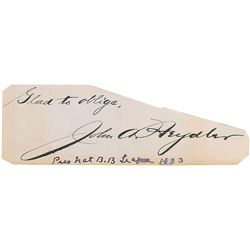 Glad to oblige,
John A Heydler
Pres Nat B.B League 1933